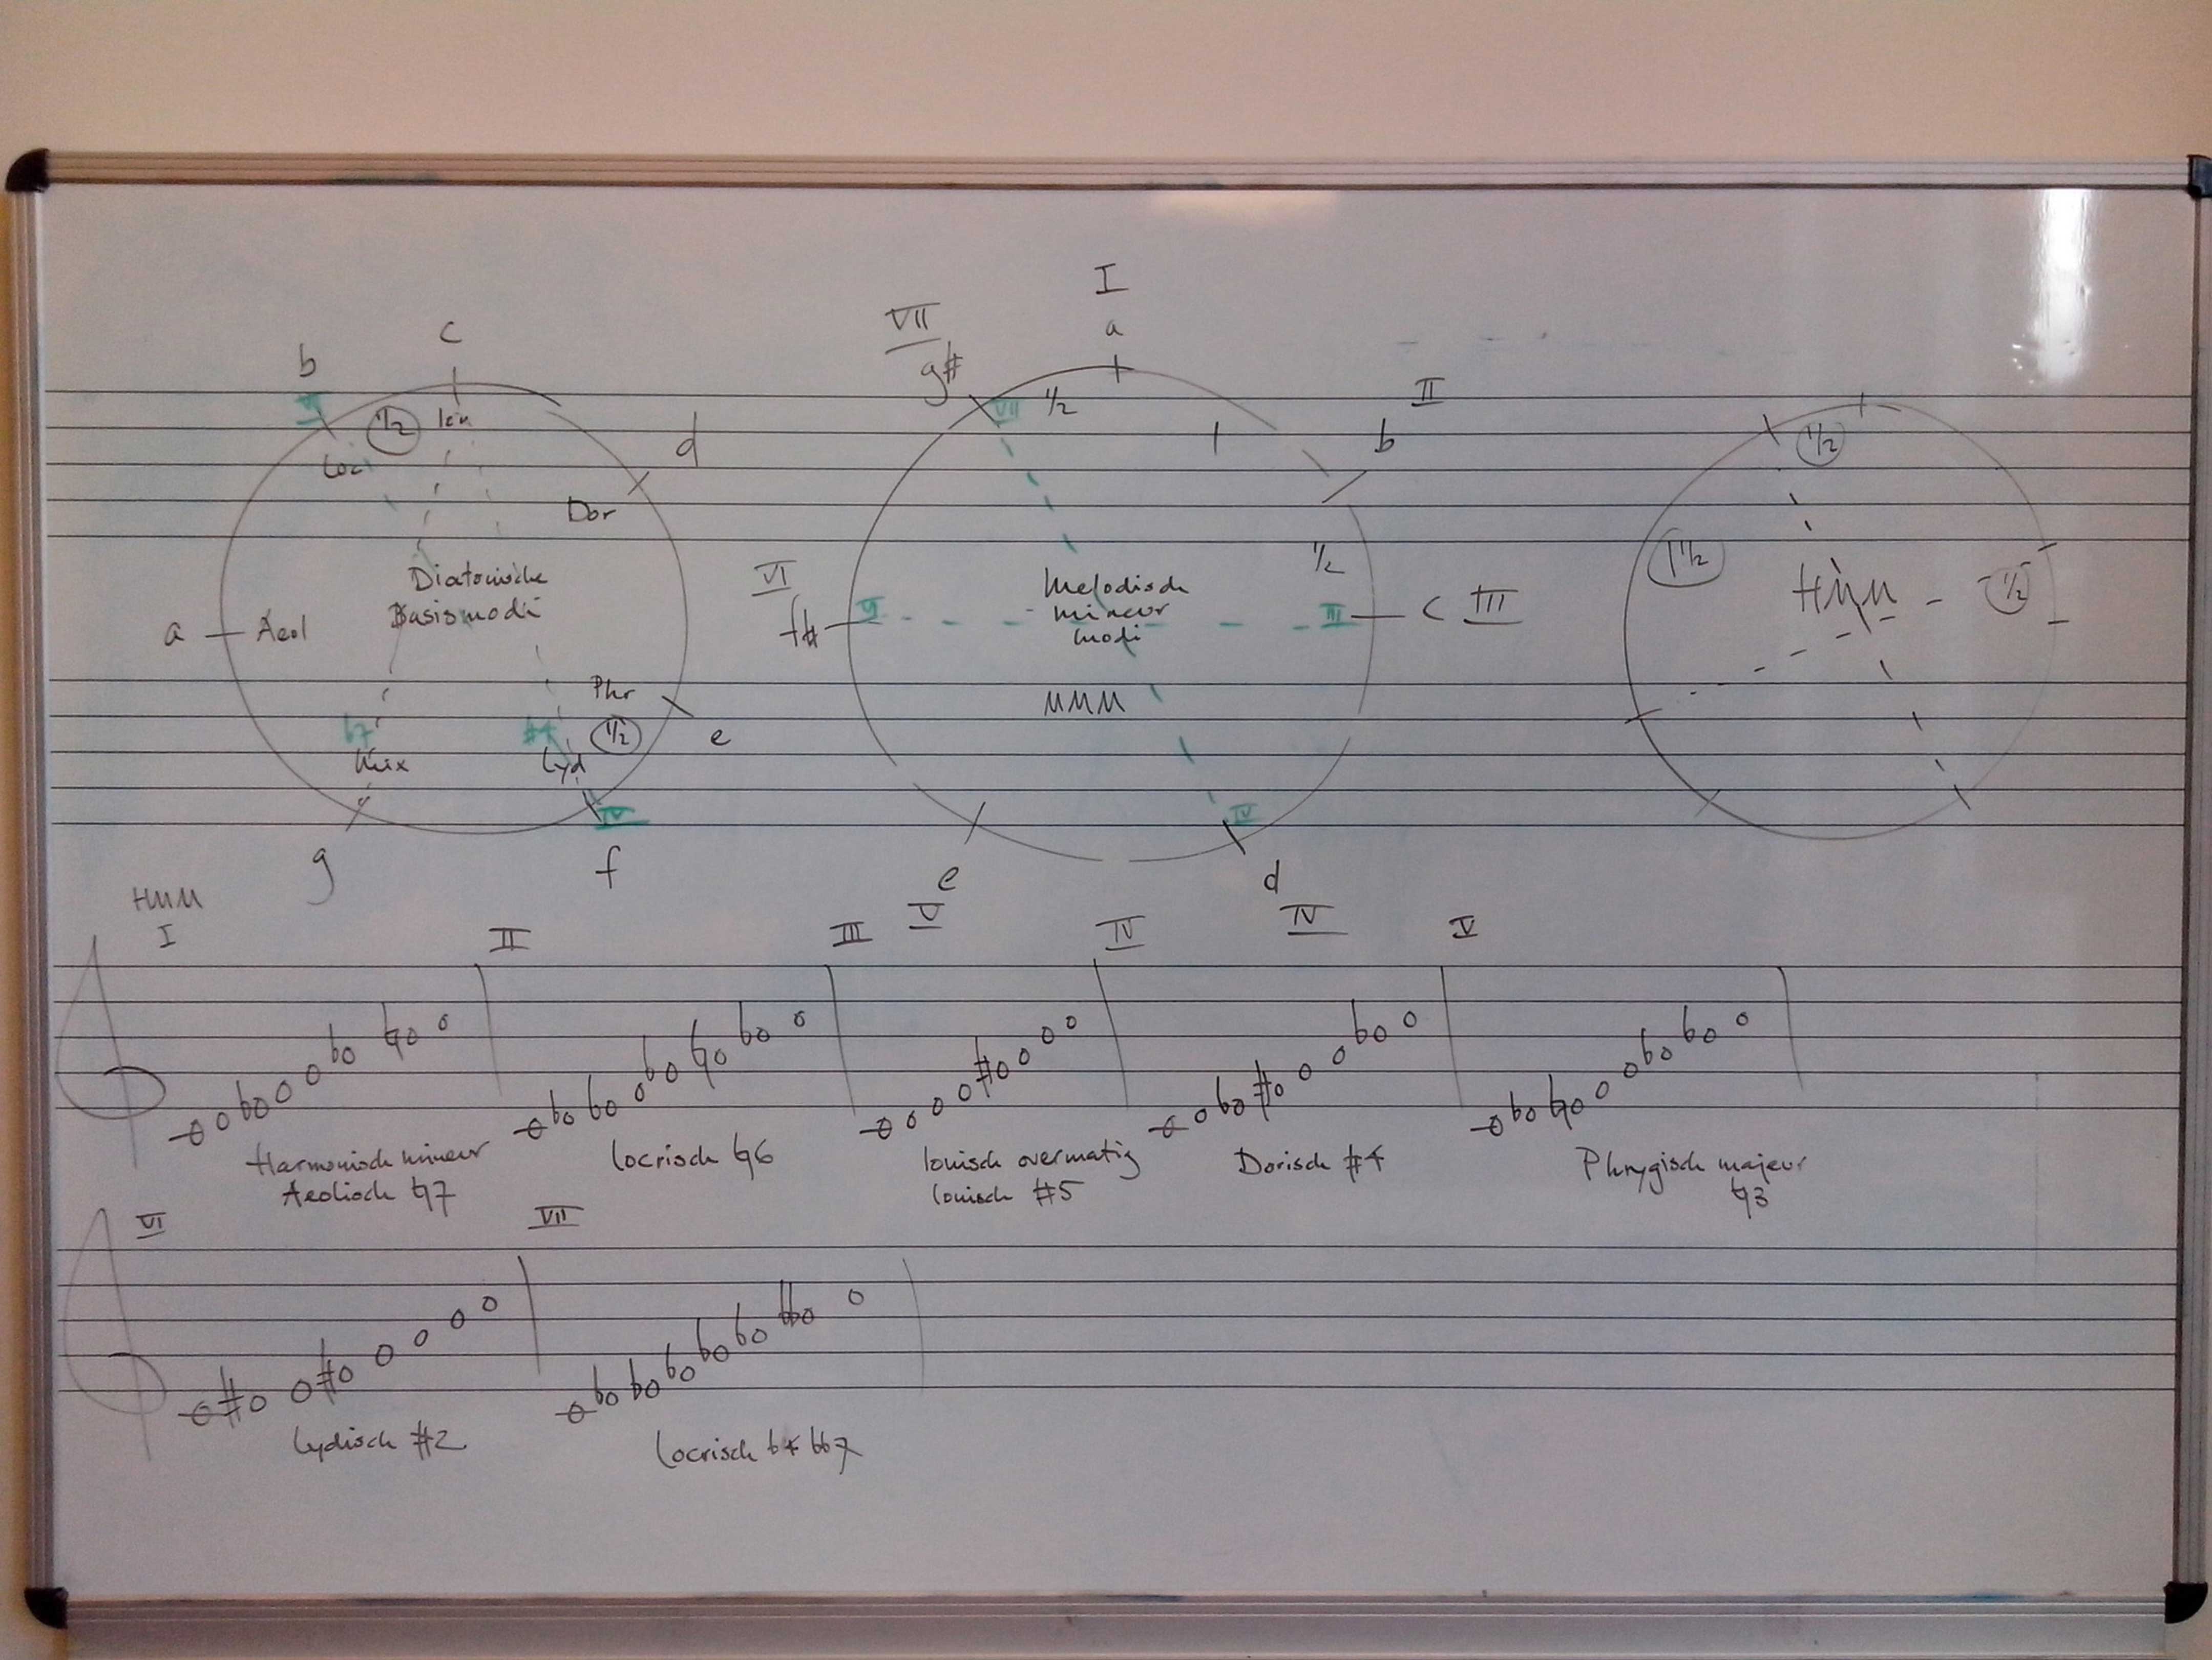 b
c
d
e
f
g
a
VII
½
Ion
Loc
Dor
Diatonische
Basismodi
Aeol
Phr
½
b7
#4
Mix
Lyd
IV
I
a
VII
g#
II
b
VII
½
1
½
VI
f#
VI
Melodisch
mineur
modi
III
c III
MMM
IV
e
V
d
IV
½
1½
HMM
½
HMM
I
II
III
IV
V
Harmonisch mineur
Aeolisch ♮7
Locrisch ♮6
Ionisch overmatig
Ionisch #5
Dorisch #4
Phrygisch majeur
♮3
VI
VII
Lydisch #2
Locrisch b4 bb7